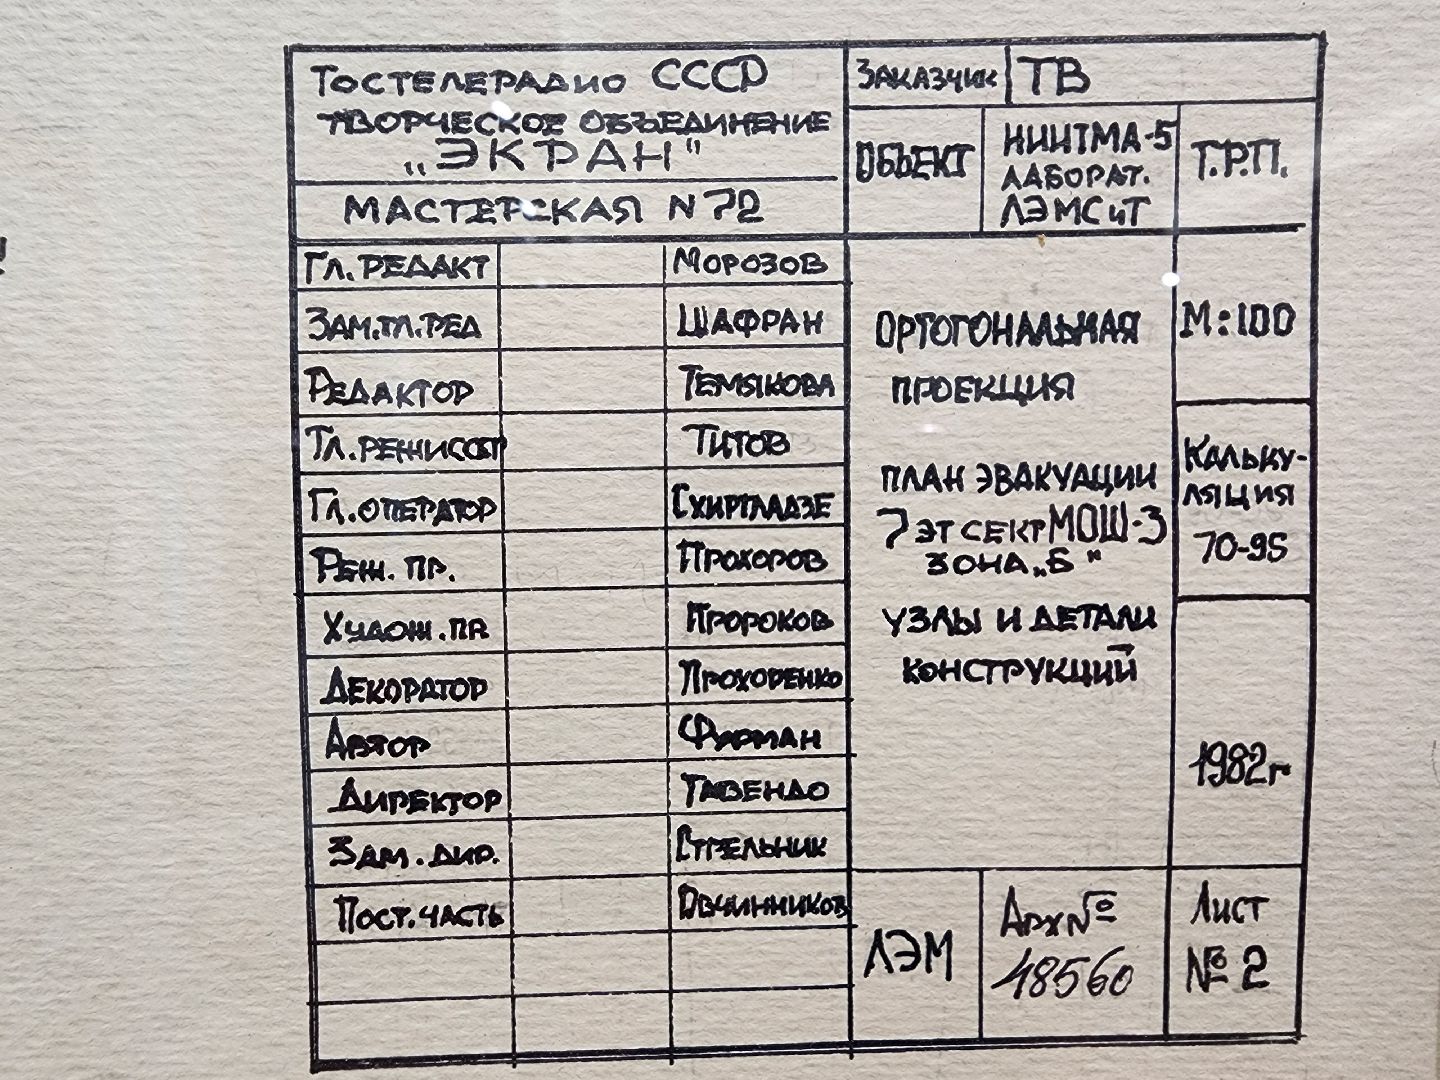 ГОСТЕЛЕРАДИО СССР
ТВОРЧЕСКОЕ ОБЪЕДИНЕНИЕ
„ЭКРАН"
МАСТЕРСКАЯ N 72
ЗАКАЗЧИК ТВ
ОБЪЕКТ
НИИТМА-5
ЛАБОРАТ.
ЛЭМС и Т
Т.Р.П.
ГЛ. РЕДАКТ МОРОЗОВ
ЗАМ.ГЛ.РЕД ШАФРАН
РЕДАКТОР ТЕМЯКОВА
ГЛ. РЕЖИССЕР ТИТОВ
ГЛ. ОПЕРАТОР СХИРТЛАДЗЕ
РЕЖ. ПР. ПРОХОРОВ
ХУДОЖ. ПР ПРОРОКОВ
ДЕКОРАТОР ПРОХОРЕНКО
АВТОР ФУРМАН
ДИРЕКТОР ГАВЕНДО
ЗАМ. ДИР. СТРЕЛЬНИК
ПОСТ. ЧАСТЬ ОВЧИННИКОВ
ОРТОГОНАЛЬНАЯ
ПРОЕКЦИЯ
ПЛАН ЭВАКУАЦИИ
7 ЭТ СЕКТ МОШ-3
ЗОНА „Б"
УЗЛЫ И ДЕТАЛИ
КОНСТРУКЦИЙ
М:100
КАЛЬКУ-
ЛЯЦИЯ
70-95
1982г
ЛЭМ
Арх №
48560
Лист
№ 2